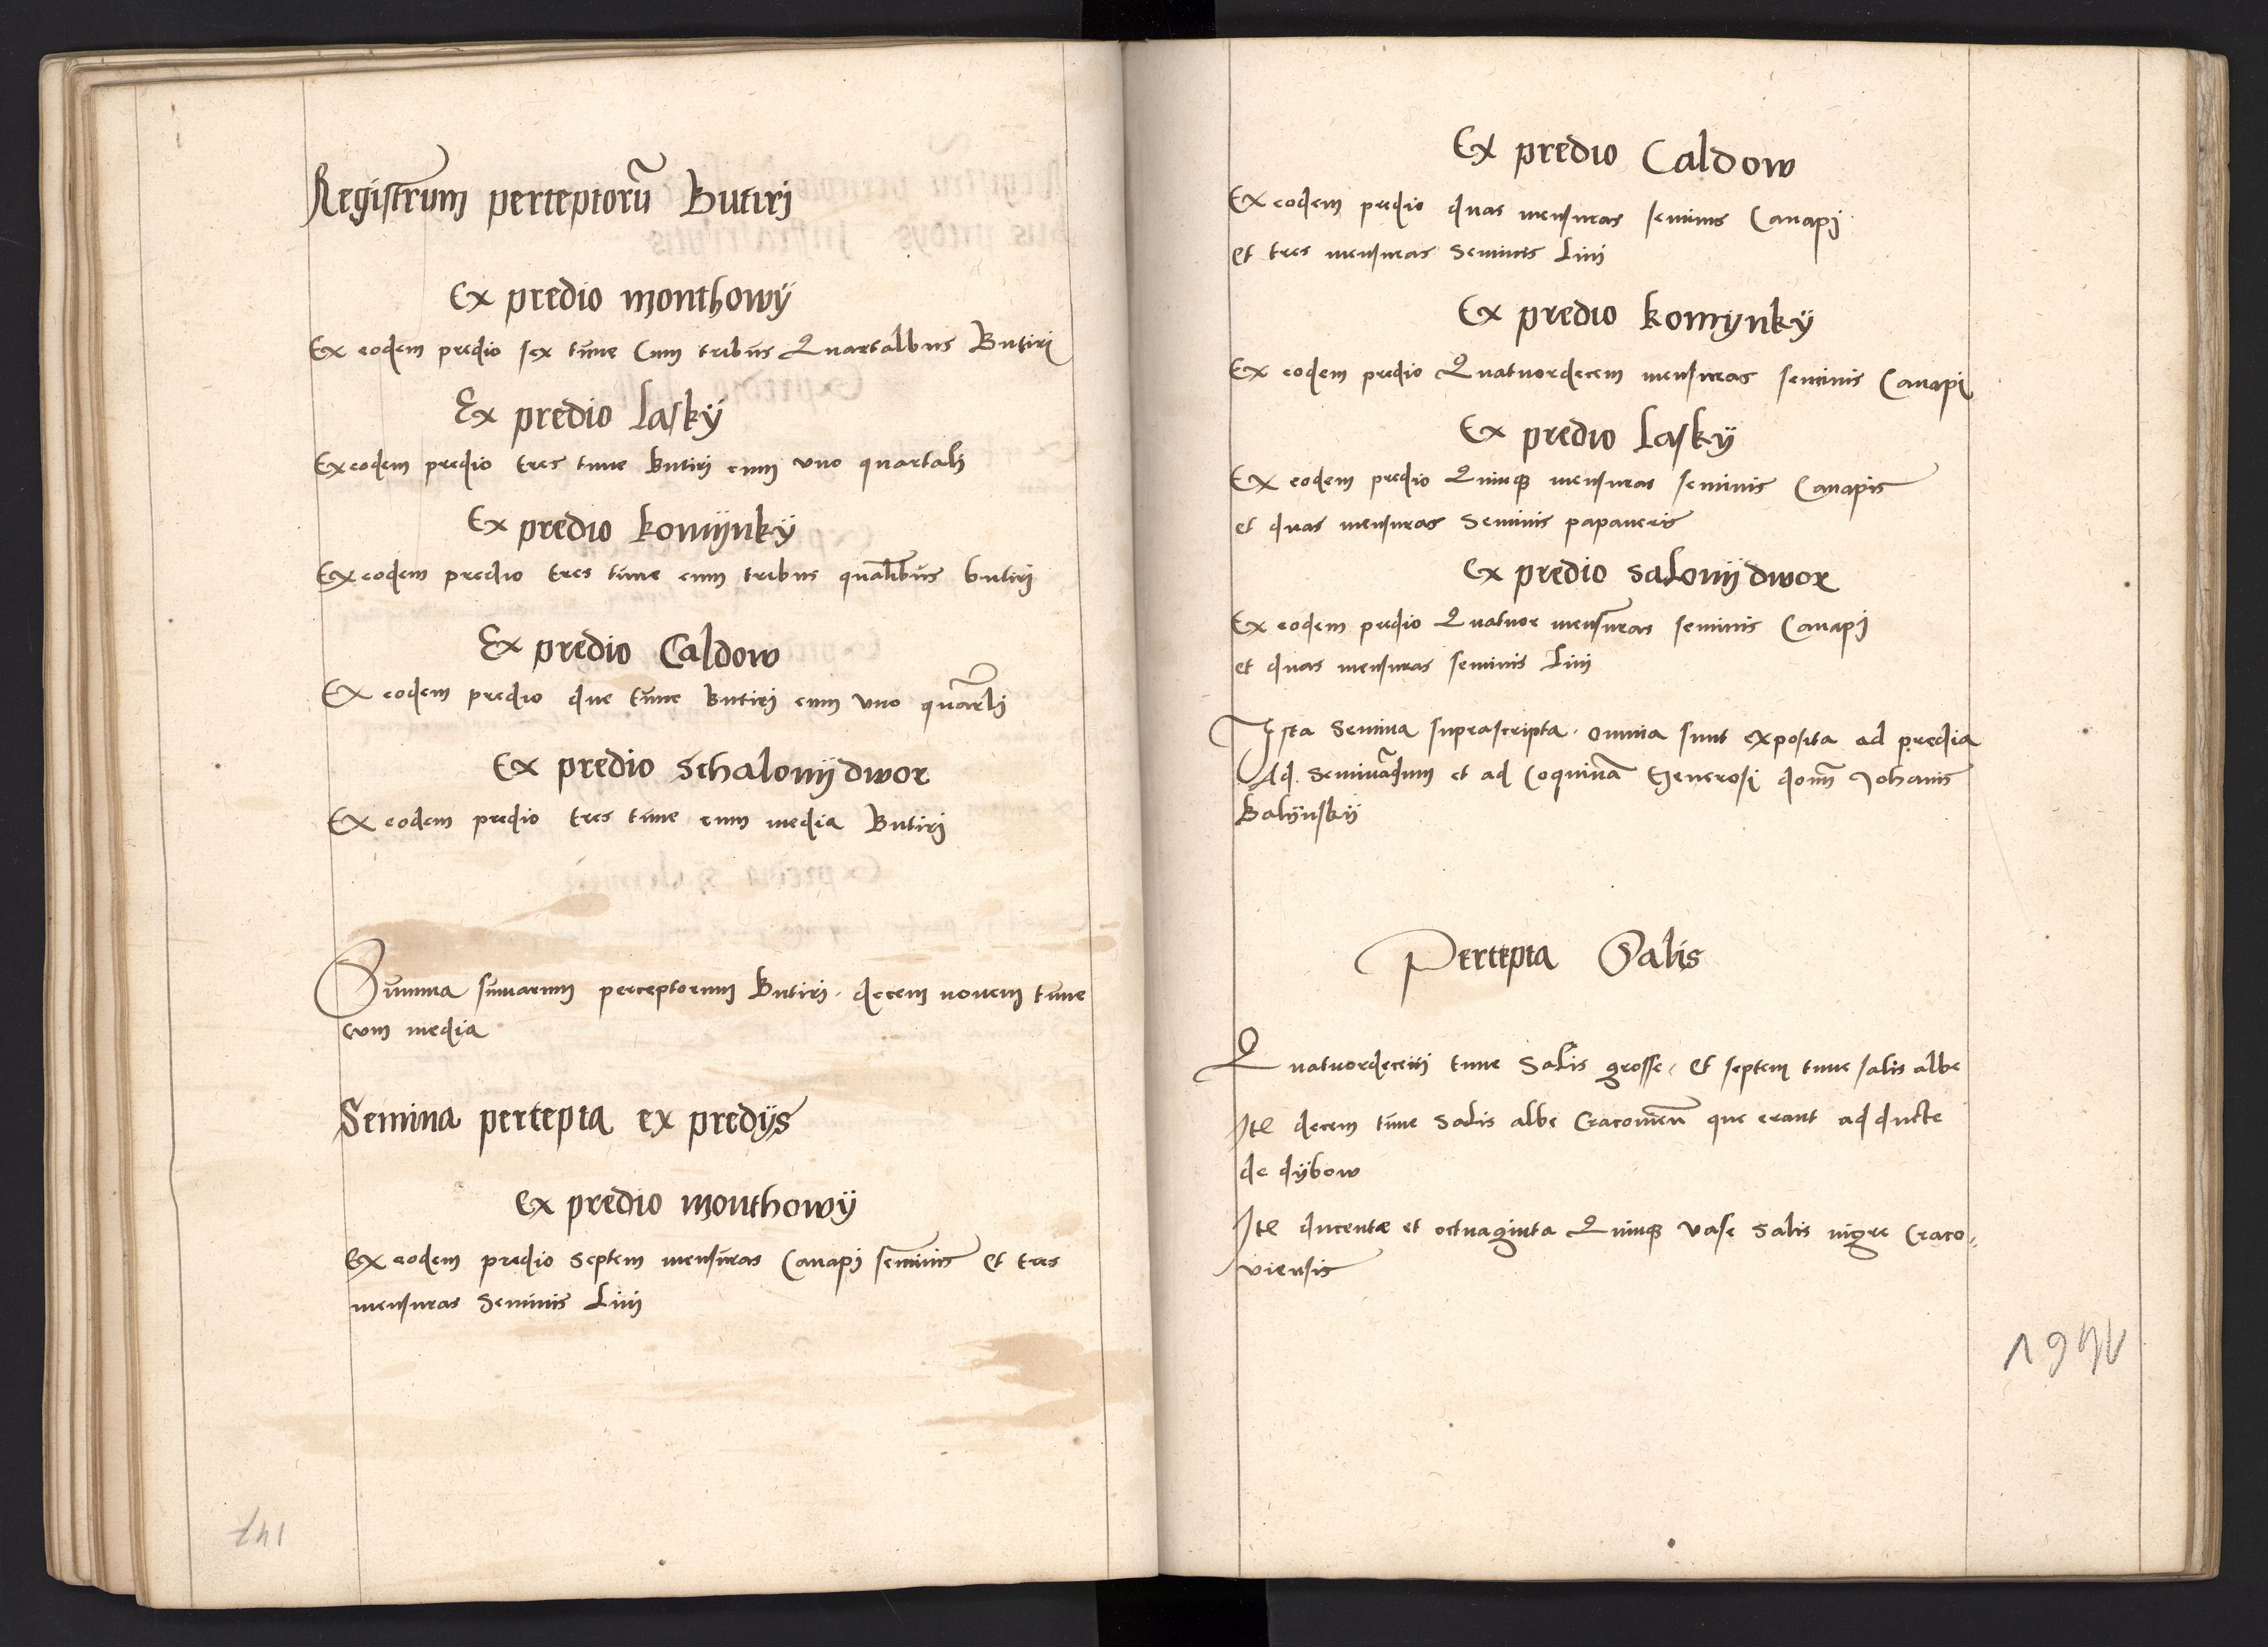 Registrum perceptorū Butirj
Ex predio monthowÿ
Ex eodem predio sex tūne Cum tribus Quartalbus Butirj
Ex predio laskÿ
Ex eodem predio tres tune butirj cum vno quartalj
Ex predio komÿnkÿ
Ex eodem predio tres tūne cum tribus qualibus butirj
Ex predio Caldow
Ex eodem predio due tūne Butirj cum vno quartlj
Ex predio Schalonÿdwor
Ex eodem predio tres tūne cum media Butirj
Summa sūmarum perceptorum Butirj. decem novem tūne
cum media
Semina percepta ex predÿs
Ex predio monthowÿ
Ex eodem predio Septem mensuras Canapj seminis et tres
mensuras Seminis Linj
147
Ex predio Caldow
Ex eodem predio duas mensuras seminis Canapj
et tres mensuras Seminis Linj
Ex predio komÿnkÿ
Ex eodem predio Quatuordecem mensuras seminis Canapj
Ex predio Laskÿ
Ex eodem predio Quinqꝫ mensuras seminis Canapis
et duas mensuras Seminis papaueris
Ex predio salonÿdwor
Ex eodem predio Quatuor mensuras seminis Canapj
et duas mensuras seminis Linj
Ista Semina suprascripta. omnia sunt exposita ad predia
Ad. Seminādum et ad Coquinā Generosi domī Johanis
Balÿnskÿ
Percepta Salis
Quatuordecem tune Salis grosse. et septem tune salis albe
Itē decem tūne Salis albe Cracouieñ que erant adducte
de dÿbow
Itē ducentæ et octuaginta Quinqꝫ vase Salis nigre Craco„
viensis